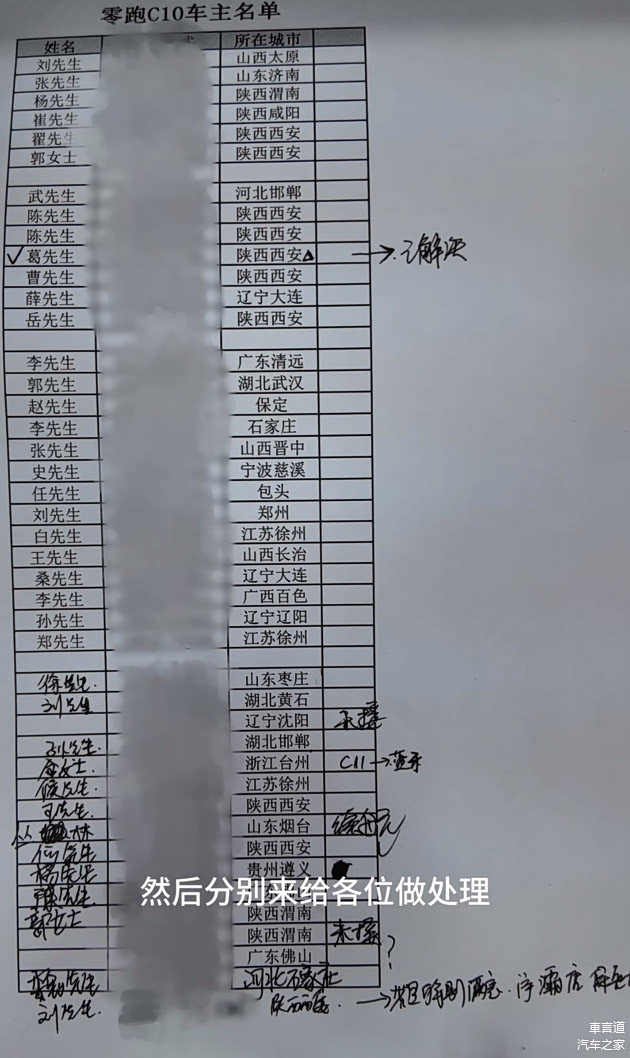 零跑C10车主名单
姓名 所在城市
刘先生 山西太原
张先生 山东济南
杨先生 陕西渭南
崔先生 陕西咸阳
翟先生 陕西西安
郭女士 陕西西安
武先生 河北邯郸
陈先生 陕西西安
陈先生 陕西西安
✓ 葛先生 陕西西安△ → 已解决
曹先生 陕西西安
薛先生 辽宁大连
岳先生 陕西西安
李先生 广东清远
郭先生 湖北武汉
赵先生 保定
李先生 石家庄
张先生 山西晋中
史先生 宁波慈溪
任先生 包头
刘先生 郑州
白先生 江苏徐州
王先生 山西长治
桑先生 辽宁大连
李先生 广西百色
孙先生 辽宁辽阳
郑先生 江苏徐州
徐先生 山东枣庄
刘先生 湖北黄石
辽宁沈阳 未接
孙先生 湖北邯郸
女士 浙江台州 C11→
侯先生 江苏徐州
王先生 陕西西安
林 山东烟台
先生 陕西西安
杨先生 贵州遵义
然后分别来给各位做处理
女士 陕西渭南
陕西渭南 未接
广东佛山 ?
先生 河北石家庄
刘先生 陕西西安 →
車言道
汽车之家